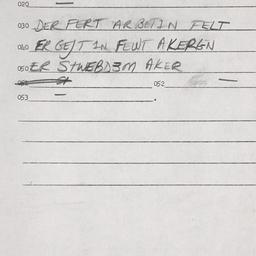 020 —
030 DER FERT ARBETIN FELT
040 ER GEJT IN FEWT AKERGN
050 ER SHWEBDEM AKER
052 —
053 —